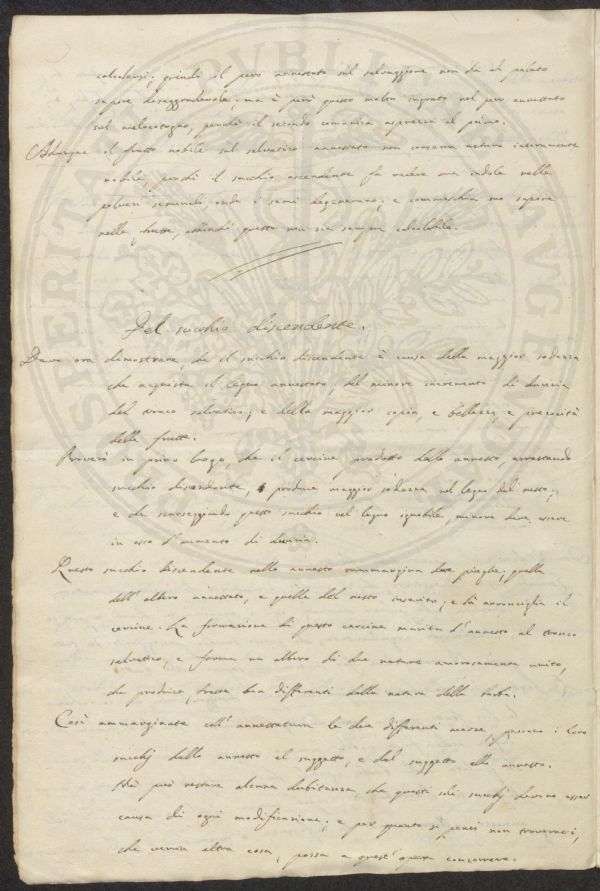 calcolarsi; quindi il pero annestato sul salvaggione non dà al palato
sapore disaggradevole; ma è però questo molto ingrato nel pero annestato
sul melocotogno, perchè il secondo comunica asprezza al primo.
Adunque il frutto nobile sul selvatico annestato non conserva natura interamente
nobile, perchè il succhio ascendente fa valere sua indole nelle
polveri seminali, onde i semi degenerano; e commischia suo sapore
nelle frutta, abbenchè questo non sia sempre calcolabile.
Del succhio discendente.
Devo ora dimostrare, che il succhio discendente è causa della maggior sodezza
che acquista il legno annestato; del minore incremento di
del tronco selvatico; e della maggior copia, e bellezza, e precocità
delle frutta.
Proverò in primo luogo, che il cercine prodotto dallo annesto, arrestando
succhio discendente, produce maggior sodezza nel legno del nesto;
e che scarseggiando questo succhio nel legno ignobile, minore deve essere
in esso l'aumento di
Questo succhio discendente nello annesto rammargina due pieghe; quella
dell'albero annestato, e quella del nesto inserito; e là arronciglia il
cercine. La formazione di questo cercine marita l'annesto al tronco
selvatico, e forma un albero di due nature amorosamente unito,
che produce frutta ben differenti dalla natura della
Così ammarginate coll'annestatura le due differenti piante, passano i loro
succhj dallo annesto al suggetto, e dal suggetto allo annesto.
Nè può restare alcuna dubitanza, che questi soli succhj devono esser
causa di ogni modificazione; e per quanto si pensi non troverassi,
che veruna altra cosa, possa a quest'opera concorrere.